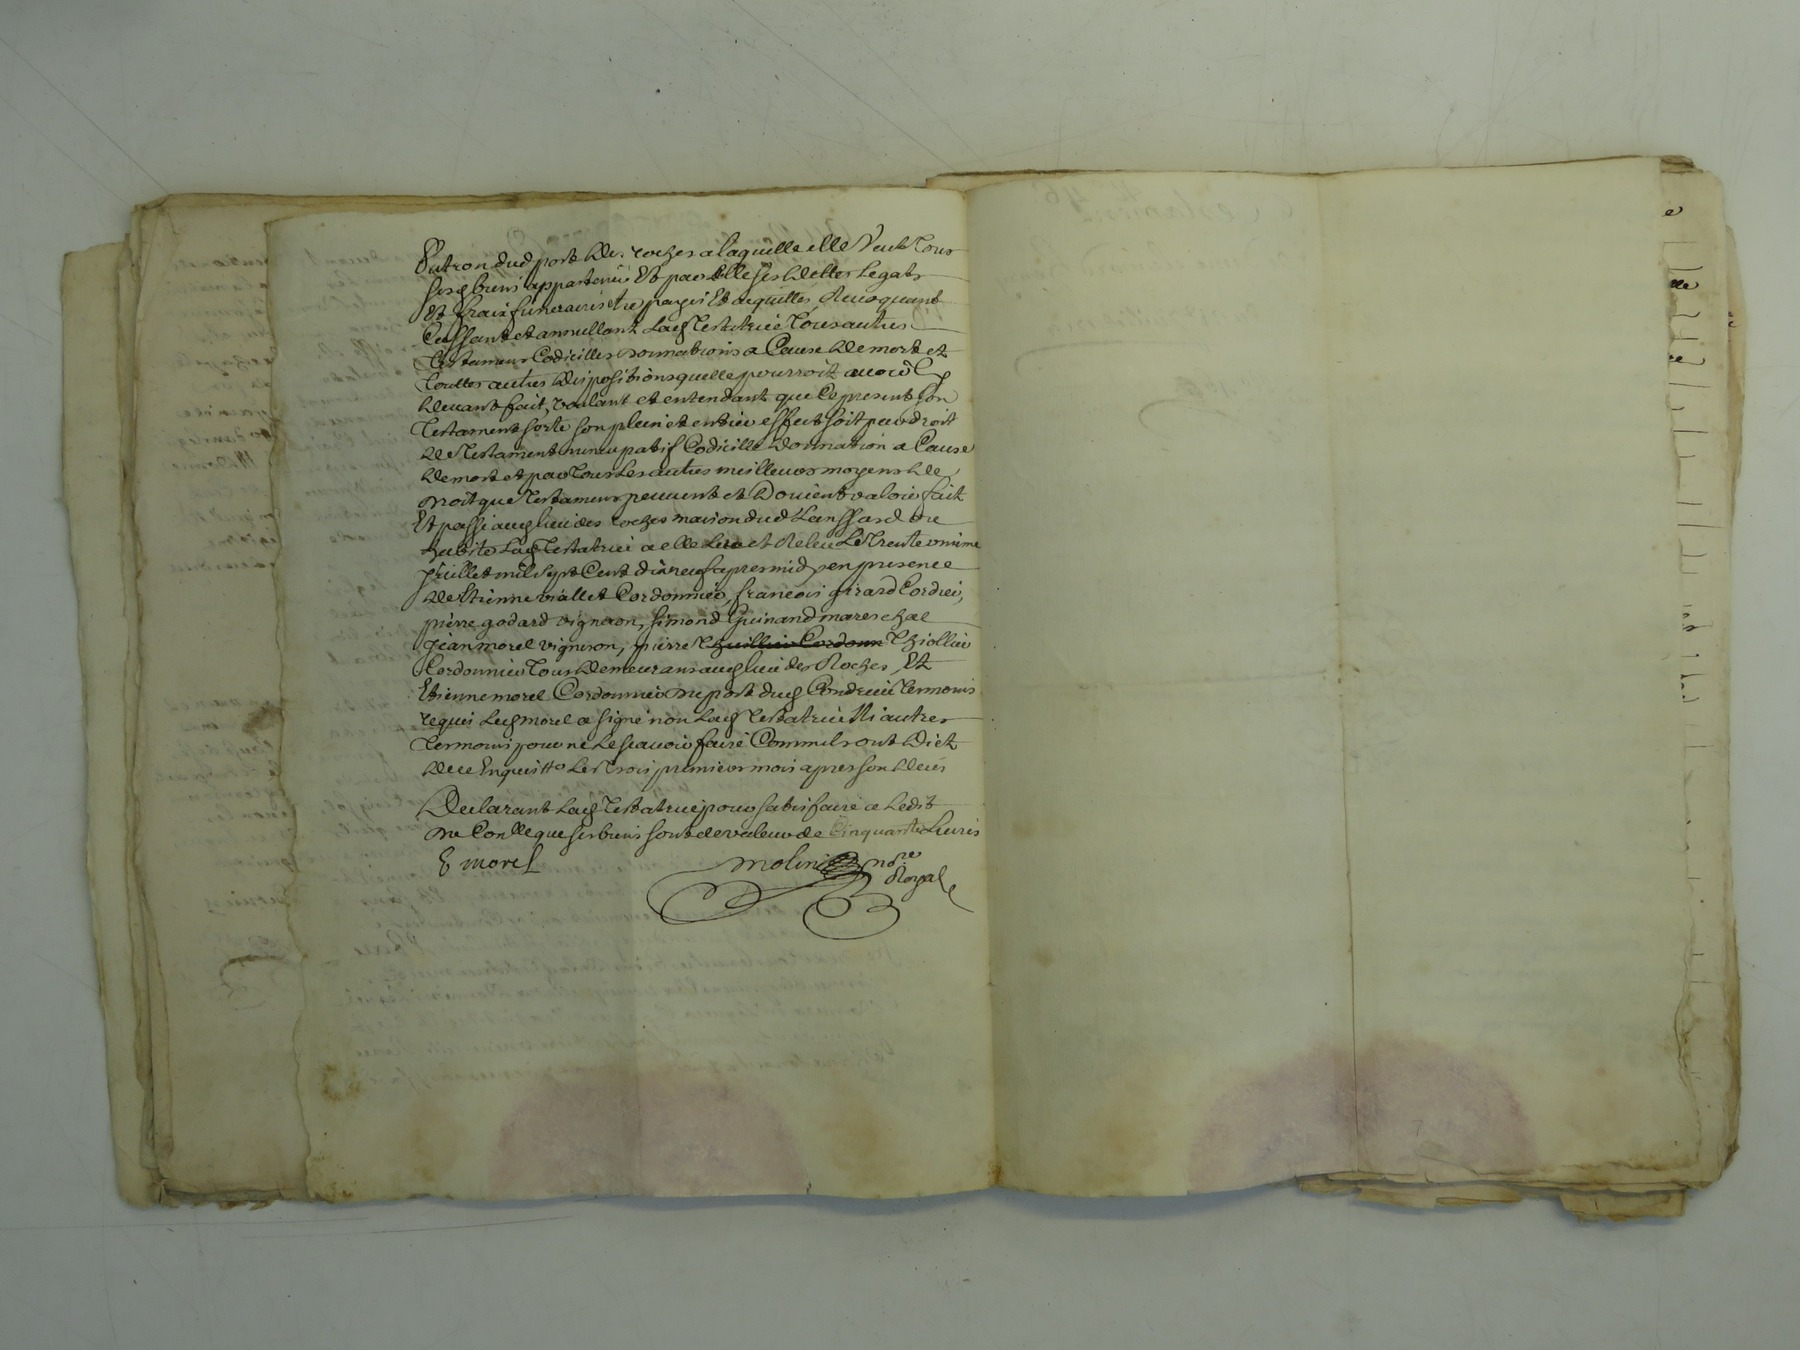 Putron dud port des roches a laquelle elle veut tous
sesd biens appartenir Et par elle ses debtes Legats
Et fraix funeraires etre payés Et acquittés, Revoquant
Cassant et annullant Lad Testatrice Tous autres
Testamens Codicilles donnations a Cause de mort et
Touttes autres dispositions quelle pourroit avoir Cy
devant fait, voulant et entendant que Ce present son
Testament sorte son plein et entier effect soit par droit
de Testament nuncupatif Codicille donnation a Cause
de mort et par Tous Les autres meilleurs moyens de
droit que Testamens peuvent et doivent valoir fait
Et passé aud lieu des roches maison dud Lanssard ou
habite Lad Testatrice a elle Leu et Releu Le Trente unime
Juillet mil sept Cent dix neuf apres midy en presence
de Etienne viallet Cordonnier, françois girard Cordier,
pierre godard vigneron, Simond Guinand mareschal
Jean morel vigneron, pierre Thiollier
Cordonnier Tous demeurans aud lieu des Roches, Et
Etienne morel Cordonnier du port dud Condrieu Temoins
requis Led morel a signé non Lad Testatrice Ni autres
Temoins pour ne Le scavoir faire Comm ils ont dict
de ce Enquis # Les Trois premiers mois apres son deces
Declarant Lad Testatrice pour satisfaire a Ledit
du Con.lle que ses biens sont de valeur de Cinquante Livres
E morel molin no.re
Royal